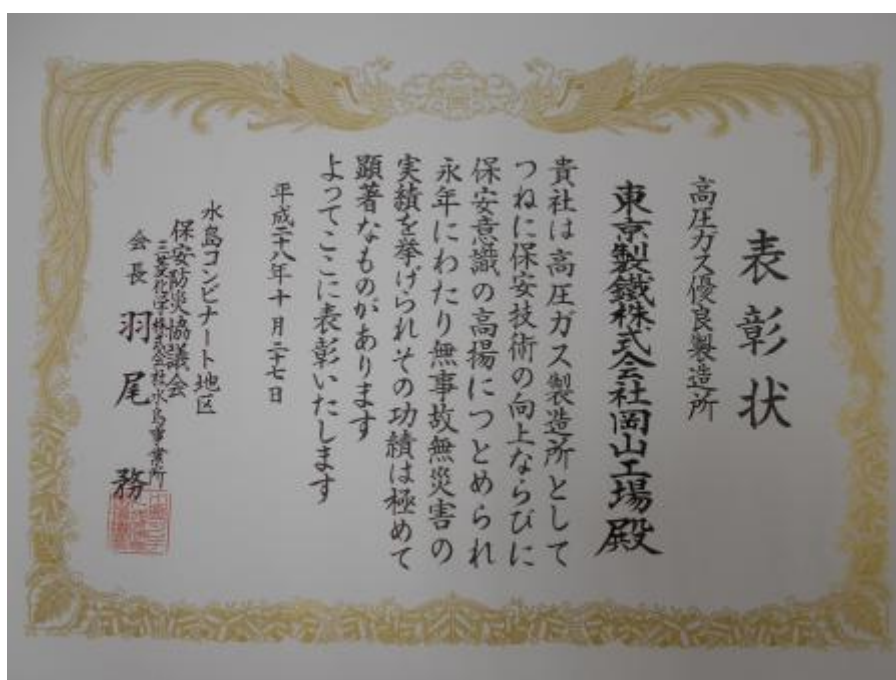 表彰状
高圧ガス優良製造所
東京製鐵株式会社岡山工場殿
貴社は高圧ガス製造所として
つねに保安技術の向上ならびに
保安意識の高揚につとめられ
永年にわたり無事故無災害の
実績を挙げられその功績は極めて
顕著なものがあります
よってここに表彰いたします
平成二十八年十月二十七日
水島コンビナート地区
保安防災協議会
三菱化学株式会社水島事業所
会長 羽尾 務